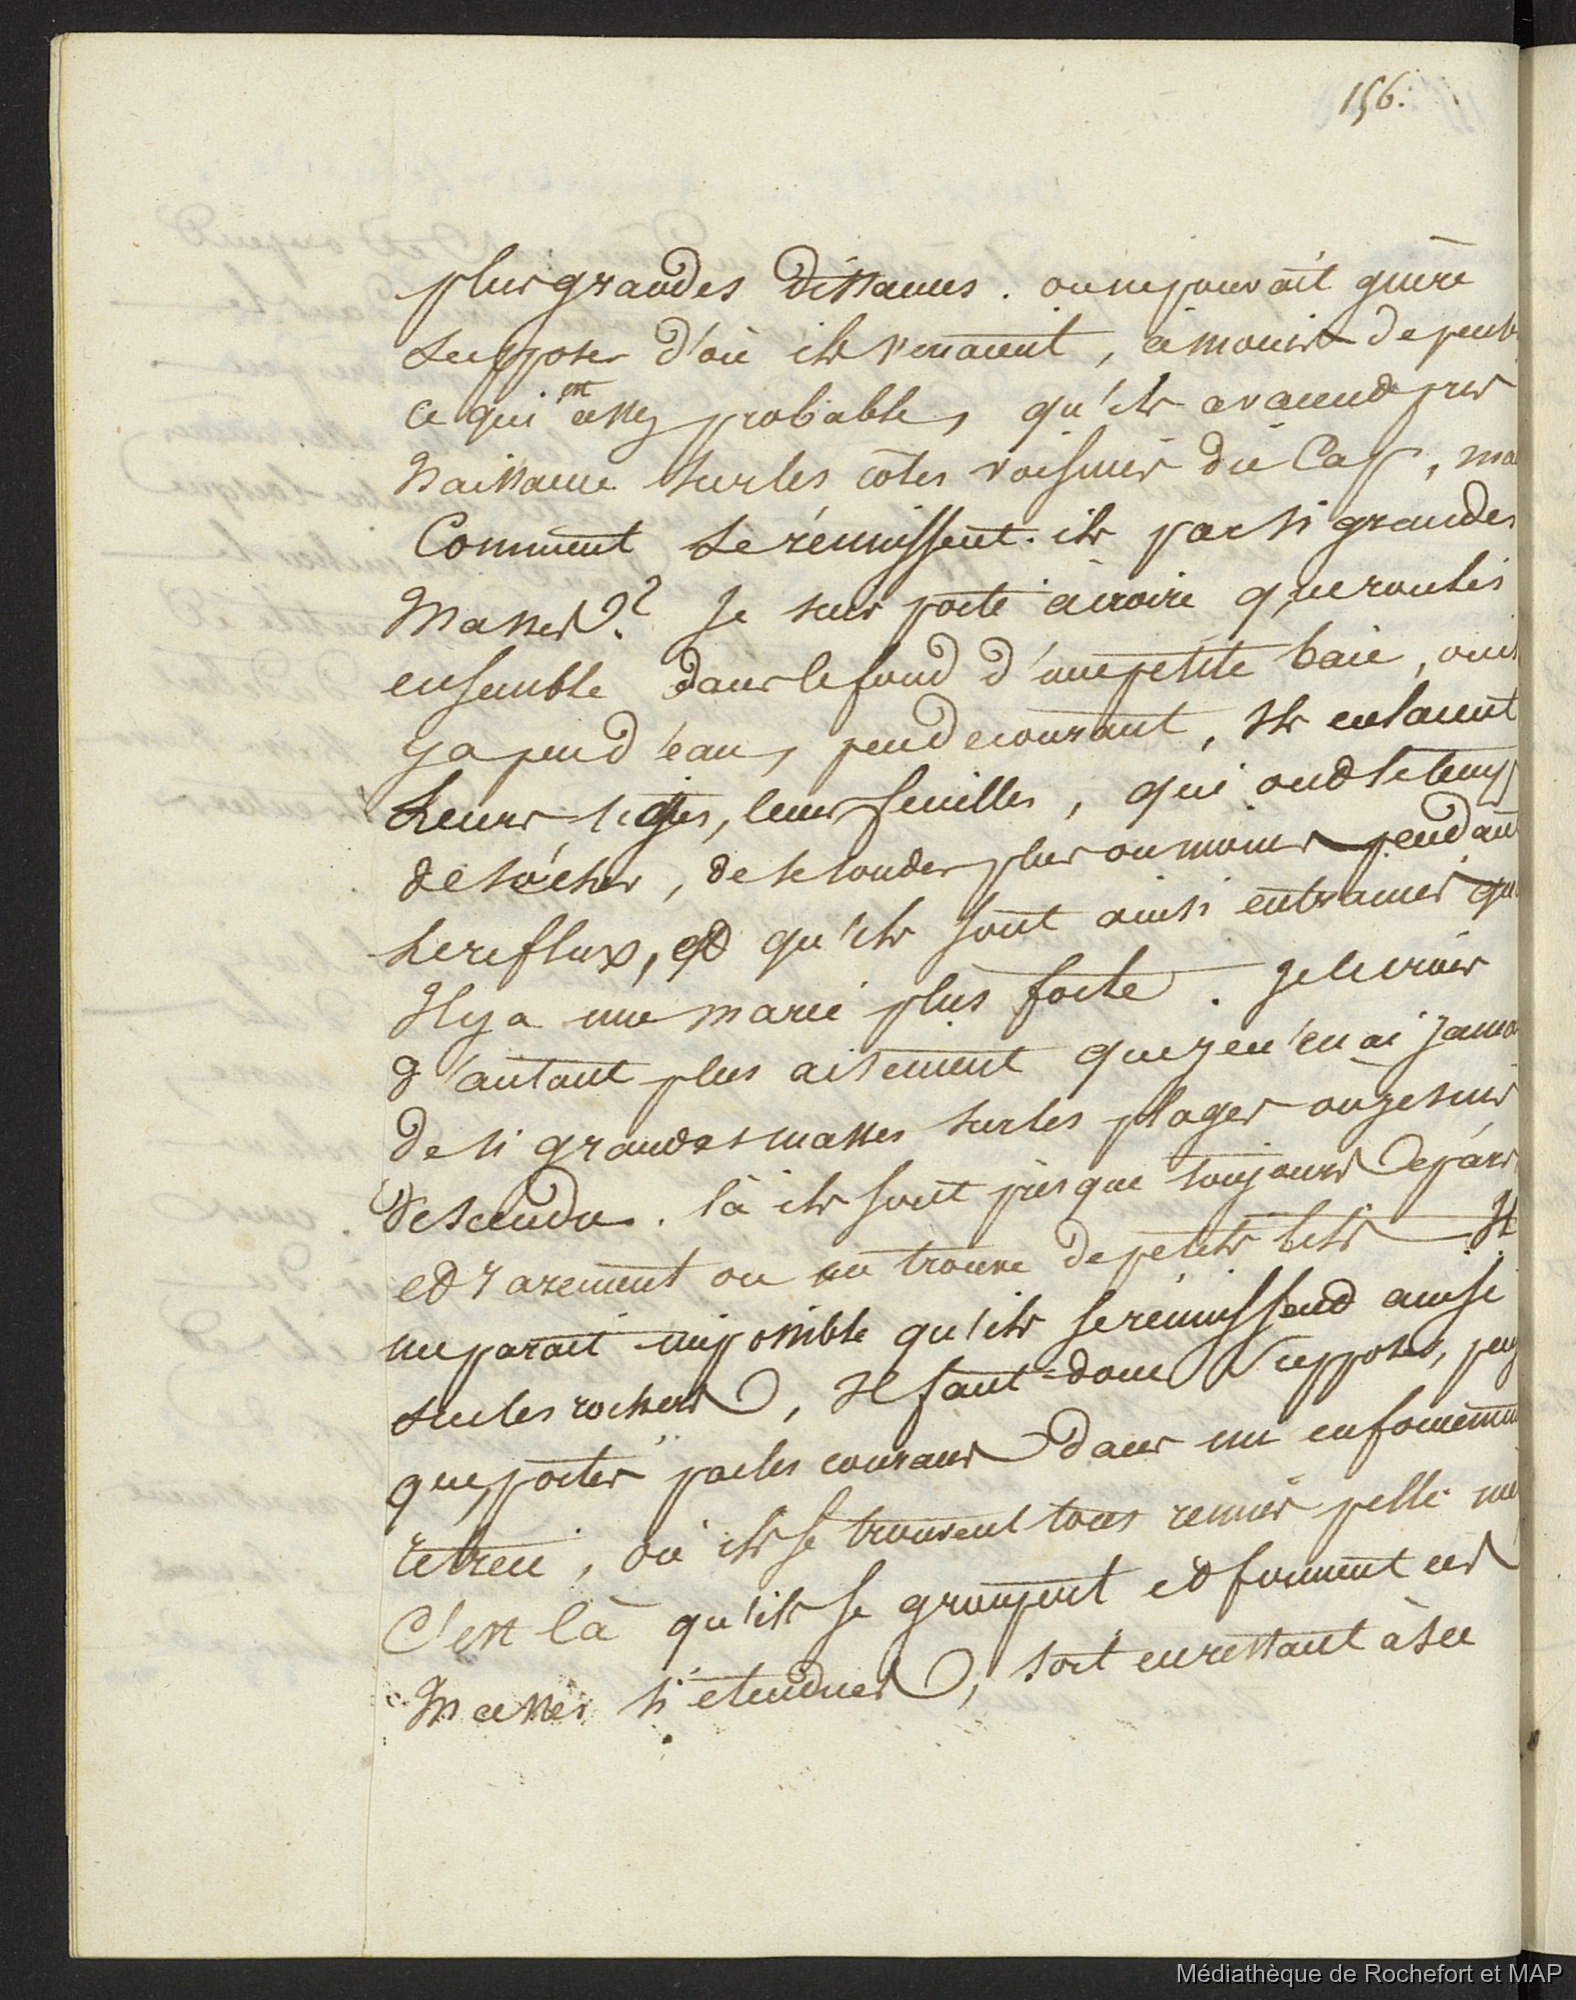 156.
plus grandes distances. on ne pouvait guère
supposer d'où ils venaient, à moins de penser
ce qui est assez probable, qu'ils avaient pris
naissance sur les côtes voisines du Cap, ma
Comment se réunissent-ils par si grandes
masses? Je suis porté à croire que roulés
ensemble dans le fond d'une petite baie, où il
y a peu d'eau, peu de courant, Ils enlacent
Leurs tiges, leurs feuilles, qui ont le temps
de sécher, de se souder plus ou moins pendant
le reflux, et qu'ils sont ainsi entrainés qu
Il y a une marée plus forte. Je le crois
d'autant plus aisement que je n'en ai jama
de si grandes masses sur les plages où je suis
descendu. là ils sont presque toujours épars
et rarement on en trouve de petits lits Il
me parait impossible qu'ils se réunissent ainsi
sur les rochers, Il faut donc supposer,
que portés par les courans dans un enfoncement
rétreci, où ils se trouvent tous réunis pelle me
C'est là qu'ils se groupent et forment ces
Masses si étendues, soit en restant à sec
Médiathèque de Rochefort et MAP